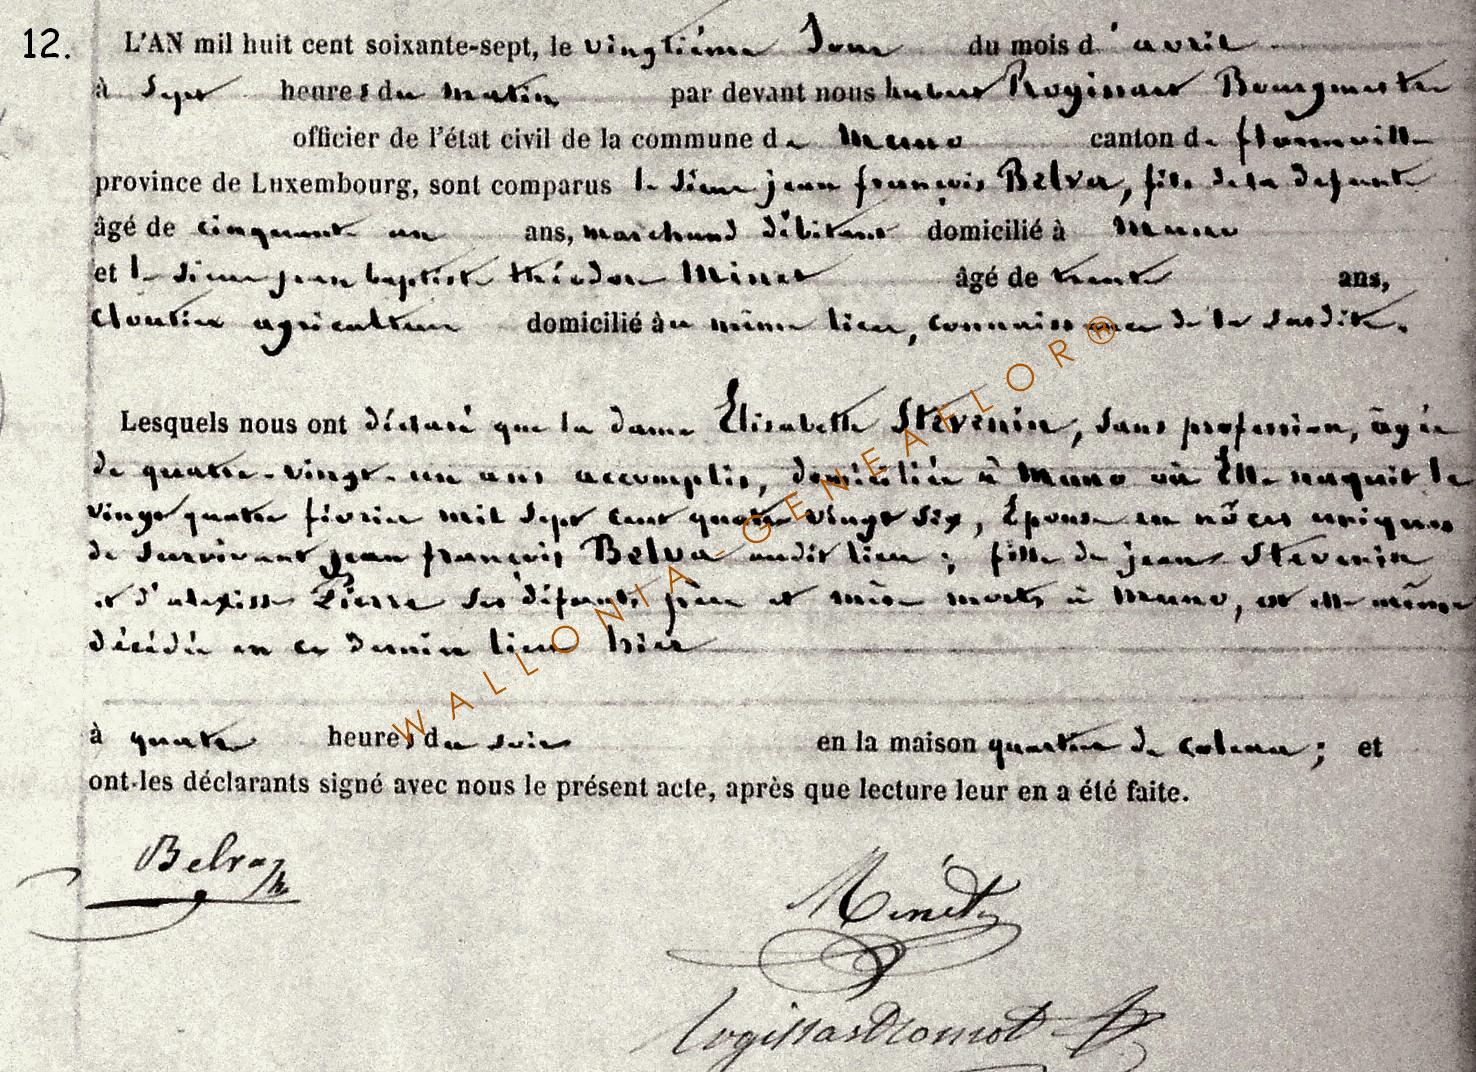 12.
L'AN mil huit cent soixante-sept, le vingtième Jour du mois d'avril
à Sept heures du matin par devant nous hubert Rogissart Bourgmestre
officier de l'état civil de la commune de Muno canton de florenville
province de Luxembourg, sont comparus le sieur jean françois Belva, fils de la defunte
âgé de cinquante un ans, marchand débitant domicilié à Muno
et le sieur jean baptiste théodore Minet âgé de trente ans,
cloutier agriculteur domicilié au même lieu, connaissance de la susdite.
Lesquels nous ont déclaré que la dame Elisabette Stévenin, sans profession, âgée
de quatre-vingt-un ans accomplis, domiciliée à Muno où Elle naquit le
vingt quatre février mil sept cent quatre vingt six, Epouse en nôces uniques
de survivant jean françois Belva audit lieu ; fille de jean Stevenin
et d' Pierre ses défunts père et mère morts à Muno, est elle même
décédée en ce dernier lieu hier
à quatre heures du soir en la maison quartier de ; et
ont les déclarants signé avec nous le présent acte, après que lecture leur en a été faite.
Belva
Minet
WALLONIA-GENEAFLOR®